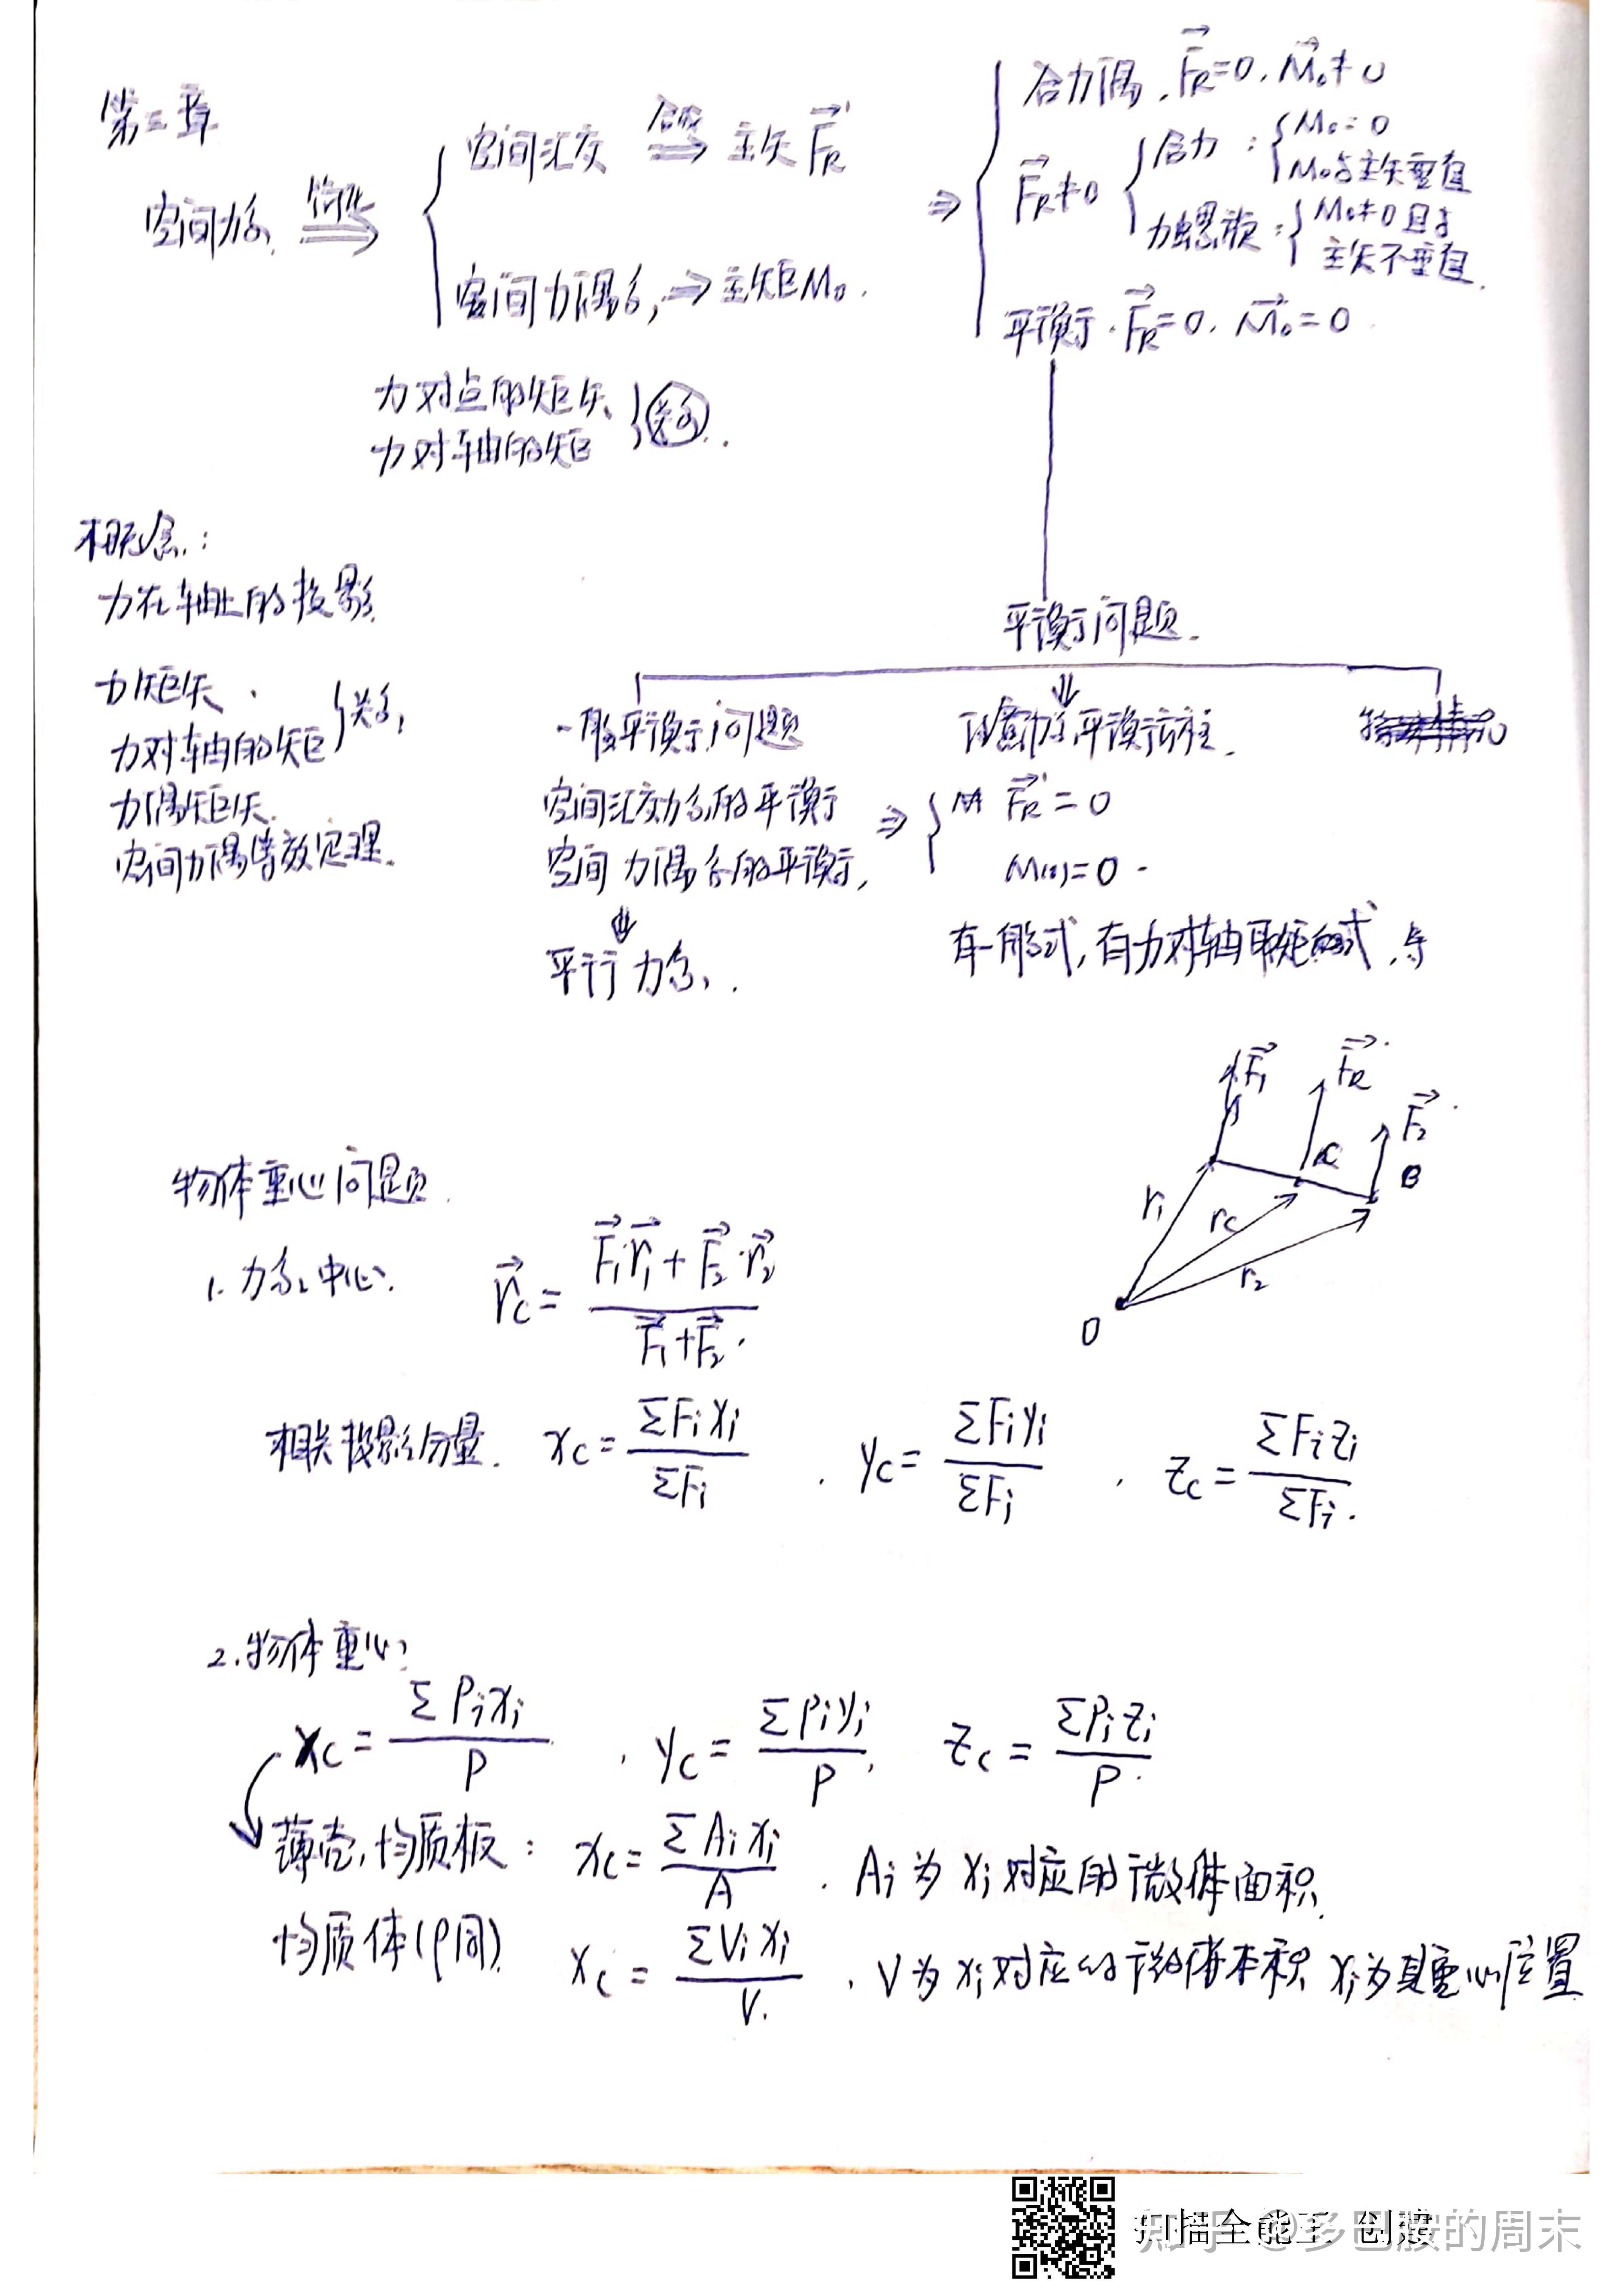 第三章
空间力系 简化⇒
空间汇交 合成⇒ 主矢 F⃗R'
空间力偶系, → 主矩M₀.
⇒ 合力偶. F⃗R=0. M⃗₀≠0
F⃗R≠0
合力: M₀=0
M₀与主矢垂直
力螺旋: M₀≠0且与
主矢不垂直.
平衡. F⃗R=0. M⃗₀=0.
力对点的矩矢、
力对轴的矩 } 关系.
概念:
力在轴上的投影
力矩矢.
力对轴的矩 } 关系,
力偶矩矢.
空间力偶等效定理.
平衡问题.
一般平衡问题
空间汇交力系的平衡
空间力偶系的平衡,
⇓
平行力系.
力系平衡方程.
⇒ { F⃗R'=0
M(o)=0.
有一般式,有力对轴取矩的式,等
物体重心问题.
1. 力系中心. r⃗c = (F⃗₁·r⃗₁ + F⃗₂·r⃗₂) / (F⃗₁+F⃗₂).
F⃗₁ F⃗R F⃗₂
C B
r₁ rc r₂
O
相关投影分量. xc = ΣFixi / ΣFi . yc = ΣFiyi / ΣFi . zc = ΣFizi / ΣFi.
2.物体重心:
xc = ΣPixi / P . yc = ΣPiyi / P . zc = ΣPizi / P.
薄壳,均质板: xc = ΣAixi / A . Ai为xi对应的微体面积.
均质体(ρ同). xc = ΣVixi / V. . V为xi对应的微体体积 xi为其重心位置
扫描全能王 创建
知乎 @多巴胺的周末